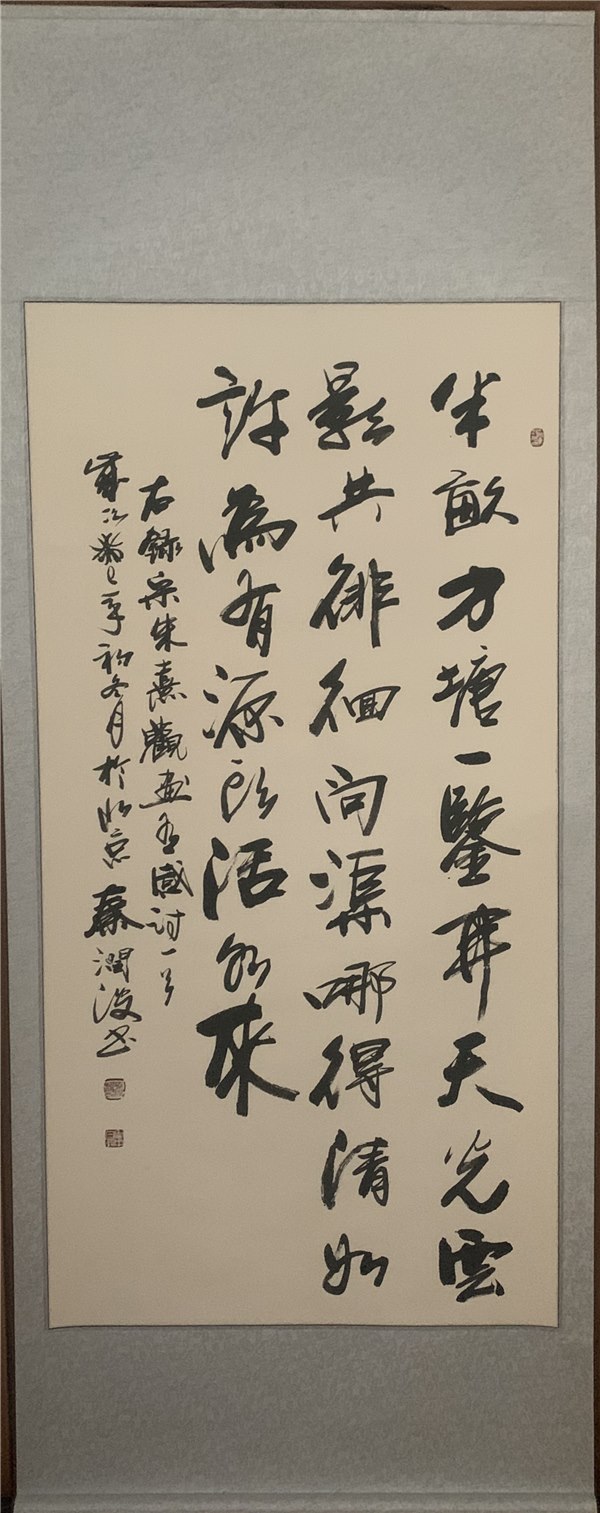 半畝方塘一鑒開天光雲
影共徘徊問渠哪得清如
許為有源頭活水來
右錄宋朱熹觀書有感詩一首
歲次癸巳年初冬月於北京秦潤波書